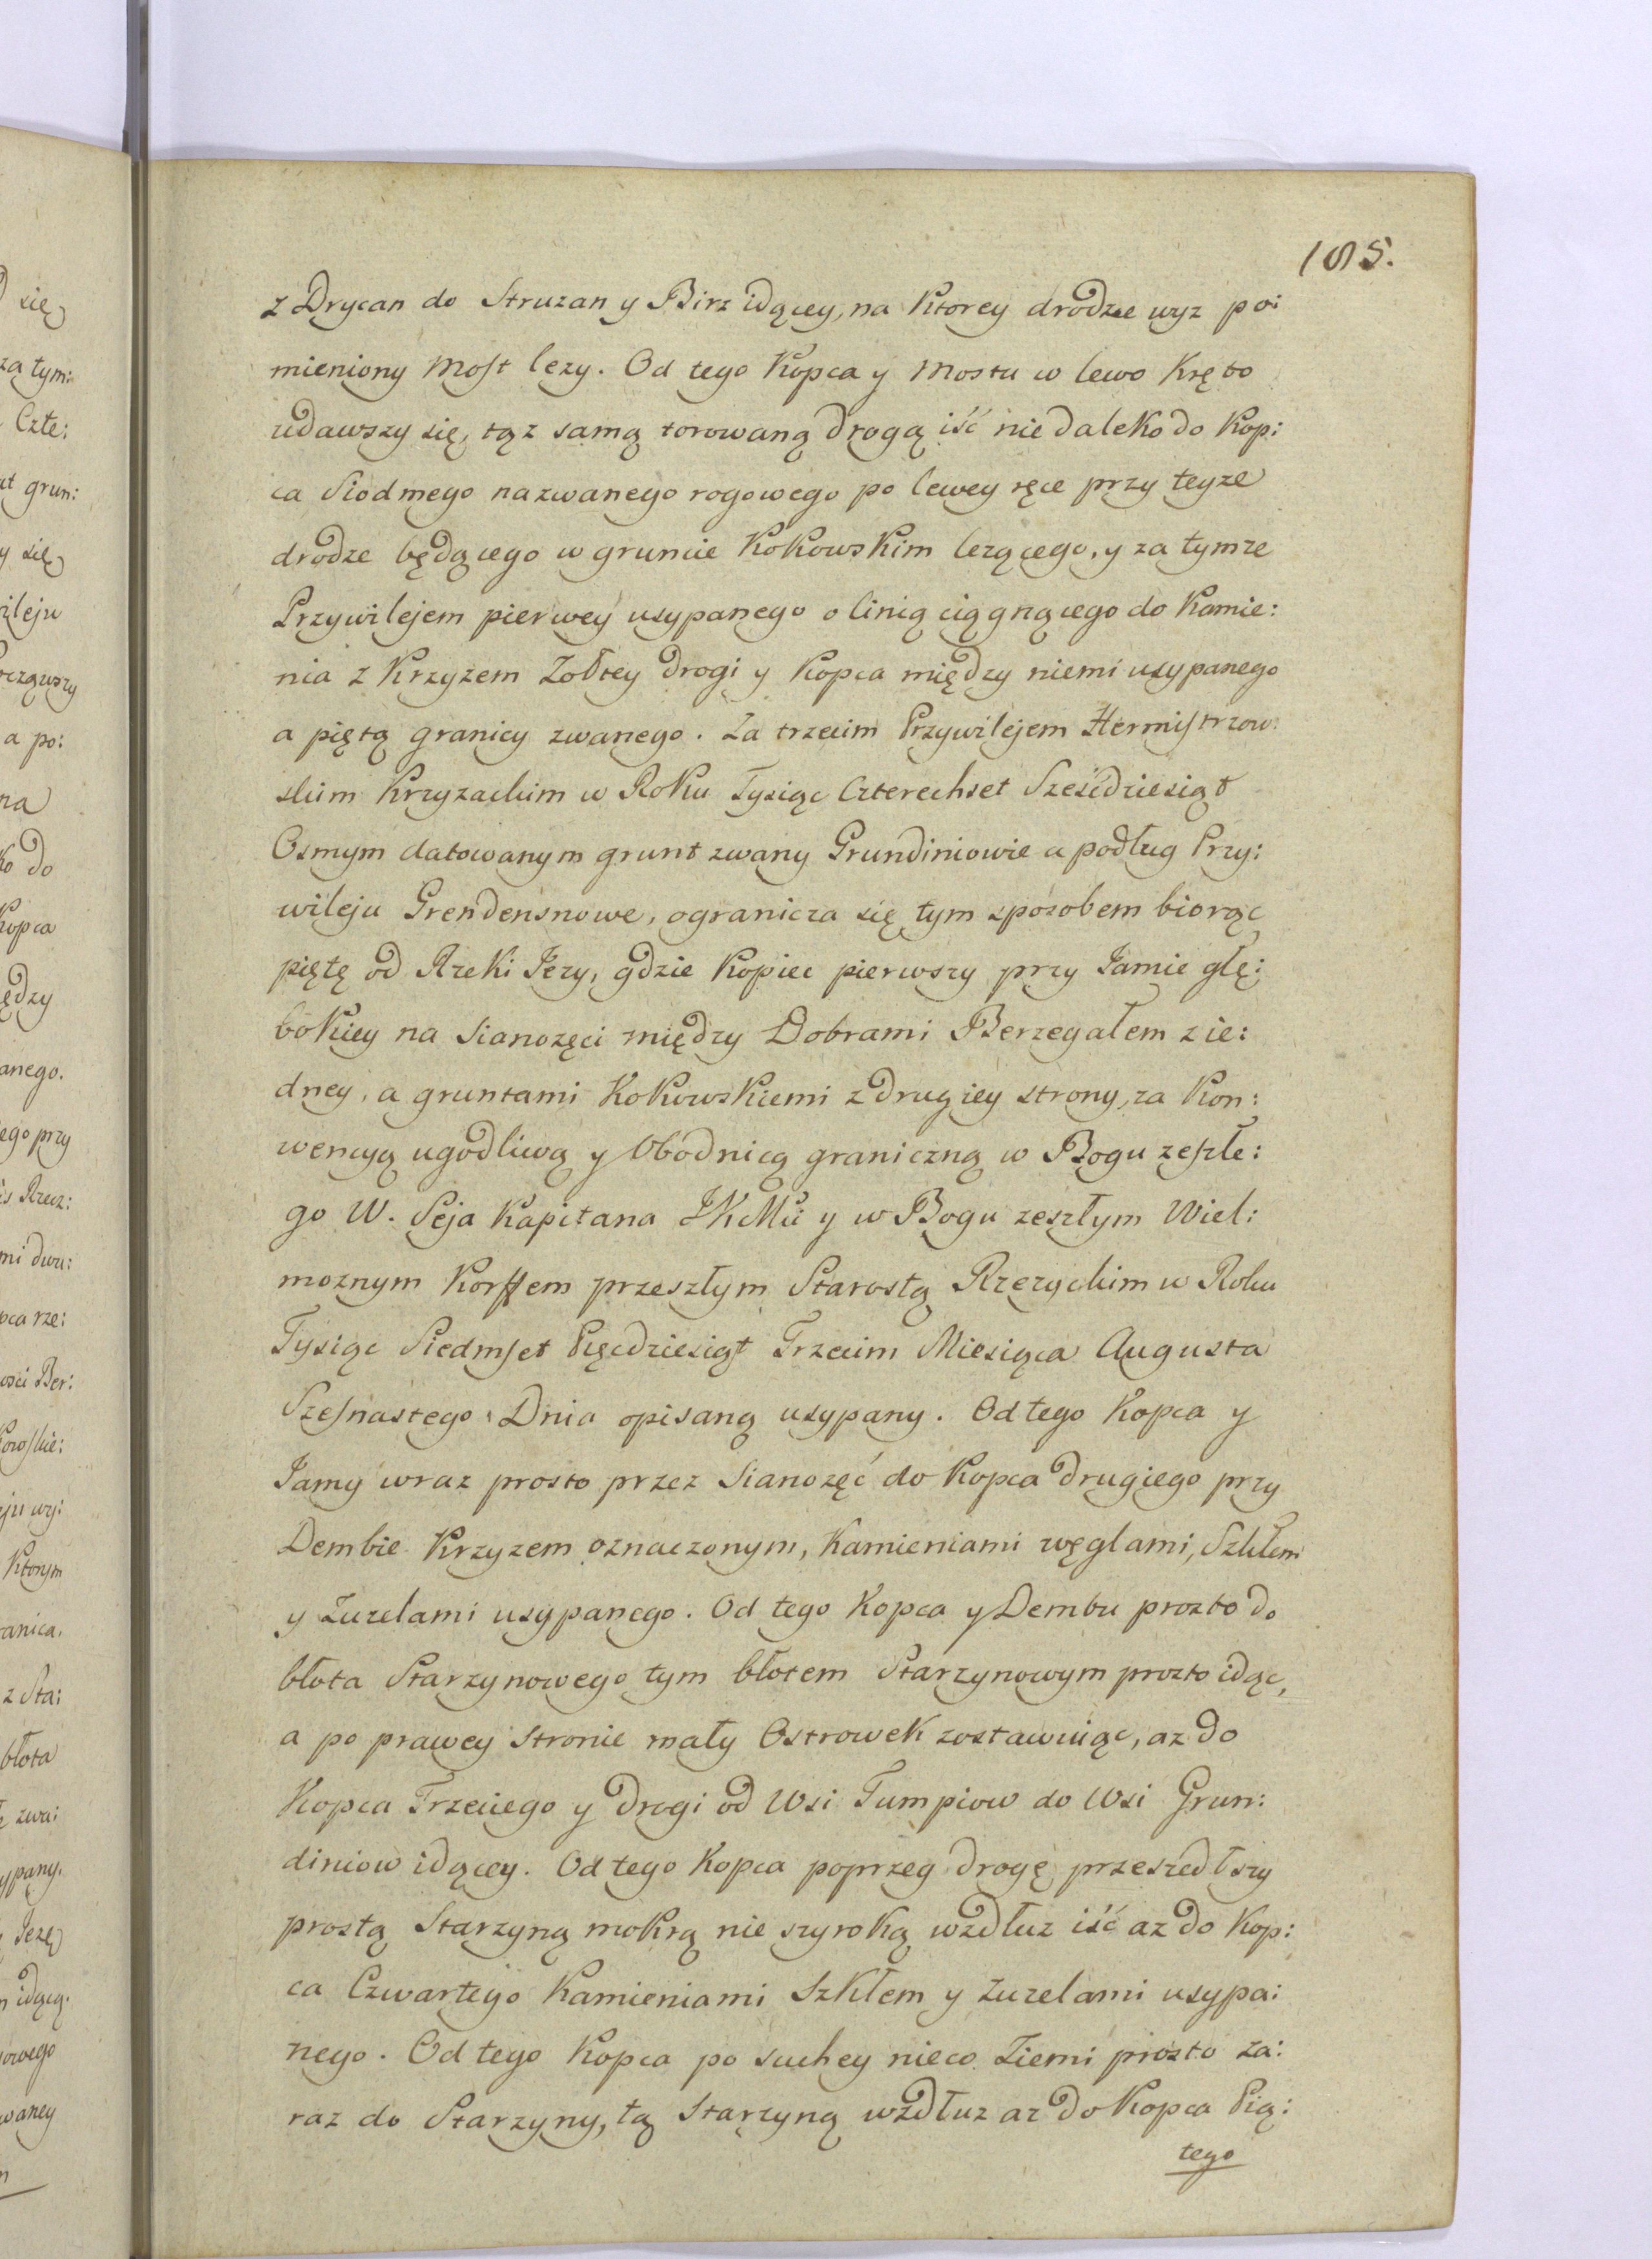 105.
z Drycan do Struzan y Birz idącey, na Ktorey drodze wyz po:
mieniony Most lezy. Od tego Kopca y Mostu w lewo Kręto
udawszy się, tąz samą torowaną drogą iść nie daleko do Kop:
ca Siodmego nazwanego rogowego po lewey ręce przy teyze
drodze będącego w gruncie Kokowskim lezącego, y za tymze
Przywilejem pierwey usypanego o linią ciągnącego do Kamie:
nia z Krzyżem Zołtey drogi y Kopca między niemi usypanego
a piętą granicy zwanego. Za trzecim Przywilejem Hermistrzow:
skim Krzyzackim w Roku Tysiąc Czterechset Sześćdziesiąt
Osmym datowanym grunt zwany Grundiniowie a podług Przy:
wileju Grendensnowe, ogranicza się tym sposobem biorąc
piętę od Rzeki Jezy, gdzie Kopiec pierwszy przy Jamie głę:
bokiey na Sianozęci między Dobrami Berzegałem z ie:
dney, a gruntami Kokowskiemi z drugiey strony, za Kon:
wencyą ugodliwą y Obodnicą graniczną w Bogu zeszłe:
go W. Seja Kapitana JKMci y w Bogu zeszłym Wiel:
moznym Korffem przeszłym Starostą Rzezyckim w Roku
Tysiąc Siedmset Pięcdziesiąt Trzecim Miesiąca Augusta
Szesnastego Dnia opisaną usypany. Od tego Kopca y
Jamy wraz prosto przez Sianozęć do Kopca drugiego przy
Dembie Krzyzem oznaczonym, Kamieniami węglami, Szkłem
y Zuzelami usypanego. Od tego Kopca y Dembu prozto do
błota Starzynowego tym błotem Starzynowym prozto idąc,
a po prawey stronie mały Ostrowek zostawuiąc, az do
Kopca Trzeciego y drogi od Wsi Tumpiow do Wsi Grun:
diniow idącey. Od tego Kopca poprzeg drogę przeszedłszy
prostą Starzyną mokrą nie szyroką wzdłuz iść az do Kop:
ca Czwartego Kamieniami Szkłem y Zuzelami usypa:
nego. Od tego Kopca po suchey nieco Ziemi prozto za:
raz do Starzyny, tą Starzyną wzdłuz az do Kopca Pią:
tego